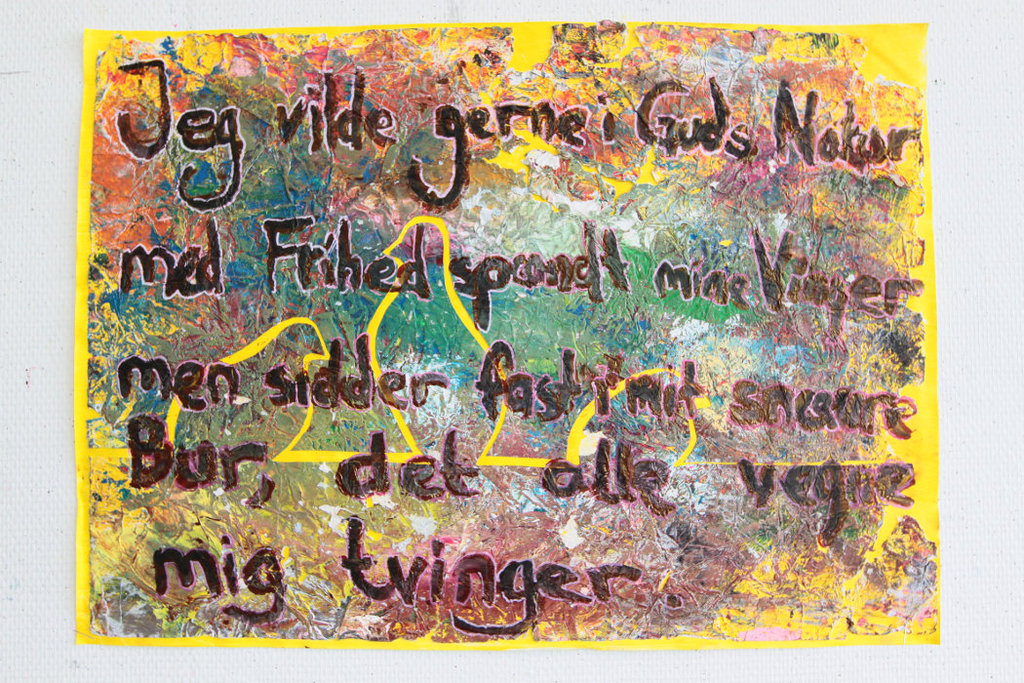 Jeg vilde gerne i Guds Natur
med Frihed spændt mine Vinger
men sidder fast i mit snævre
Bur, det alle vegne
mig tvinger.